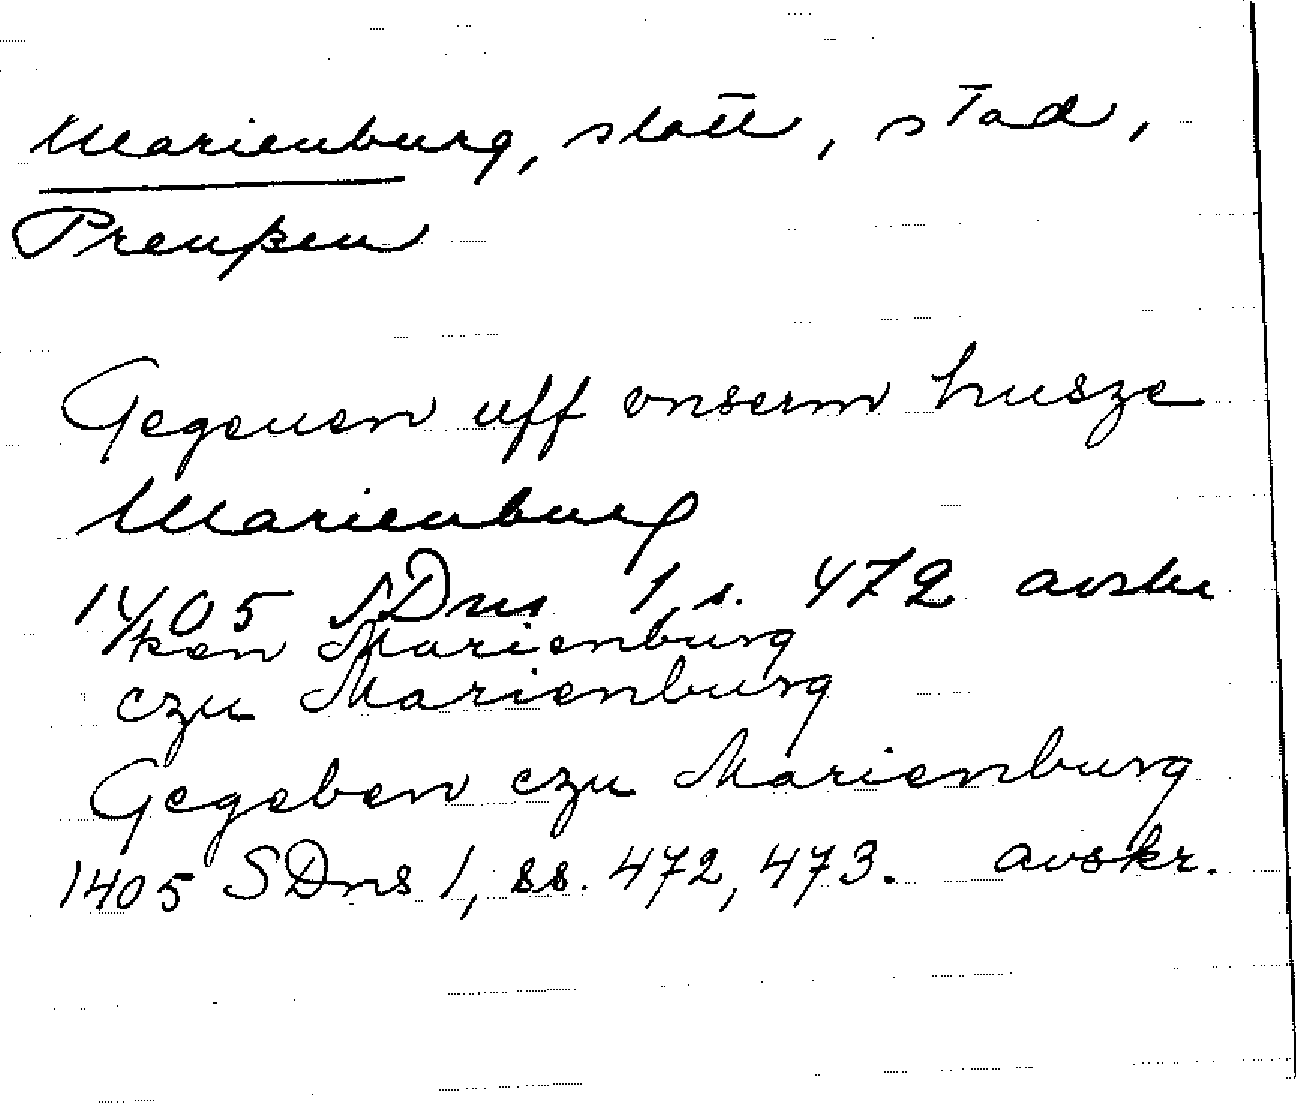 Marienburg, slott, stad,
Preußen
Gegeuen uff onserm husze
Marienburg
1405 SDns 1, s. 472 avskr
ken Marienburg
czu Marienburg
Gegeben czu Marienburg
1405 SDns 1, ss. 472, 473. avskr.